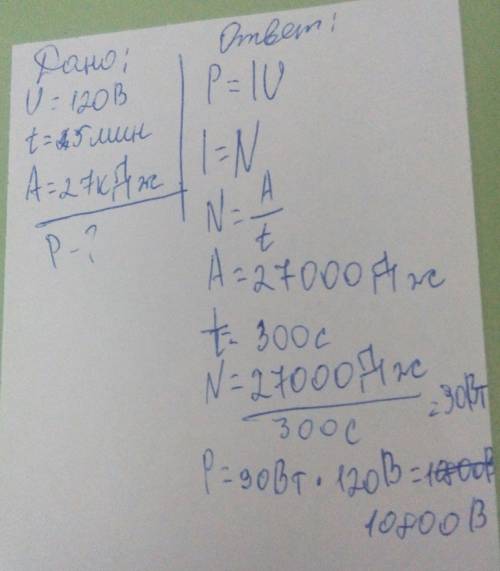 Дано:
U = 120В
t = 5 мин
A = 27кДж
P - ?
Ответ:
P = IU
I = N
N = A/t
A = 27000 Дж
t = 300с
N = 27000 Дж / 300с = 90Вт
P = 90Вт · 120В =
10800В